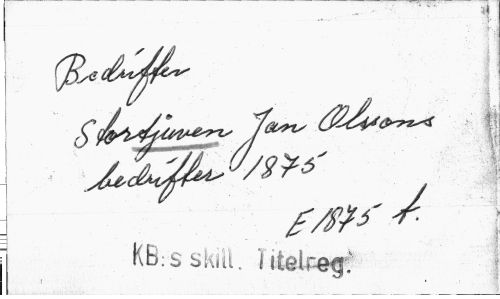 Bedrifter
Stortjuven Jan Olssons
bedrifter 1875
E 1875 t.
KB:s skill. Titelreg.